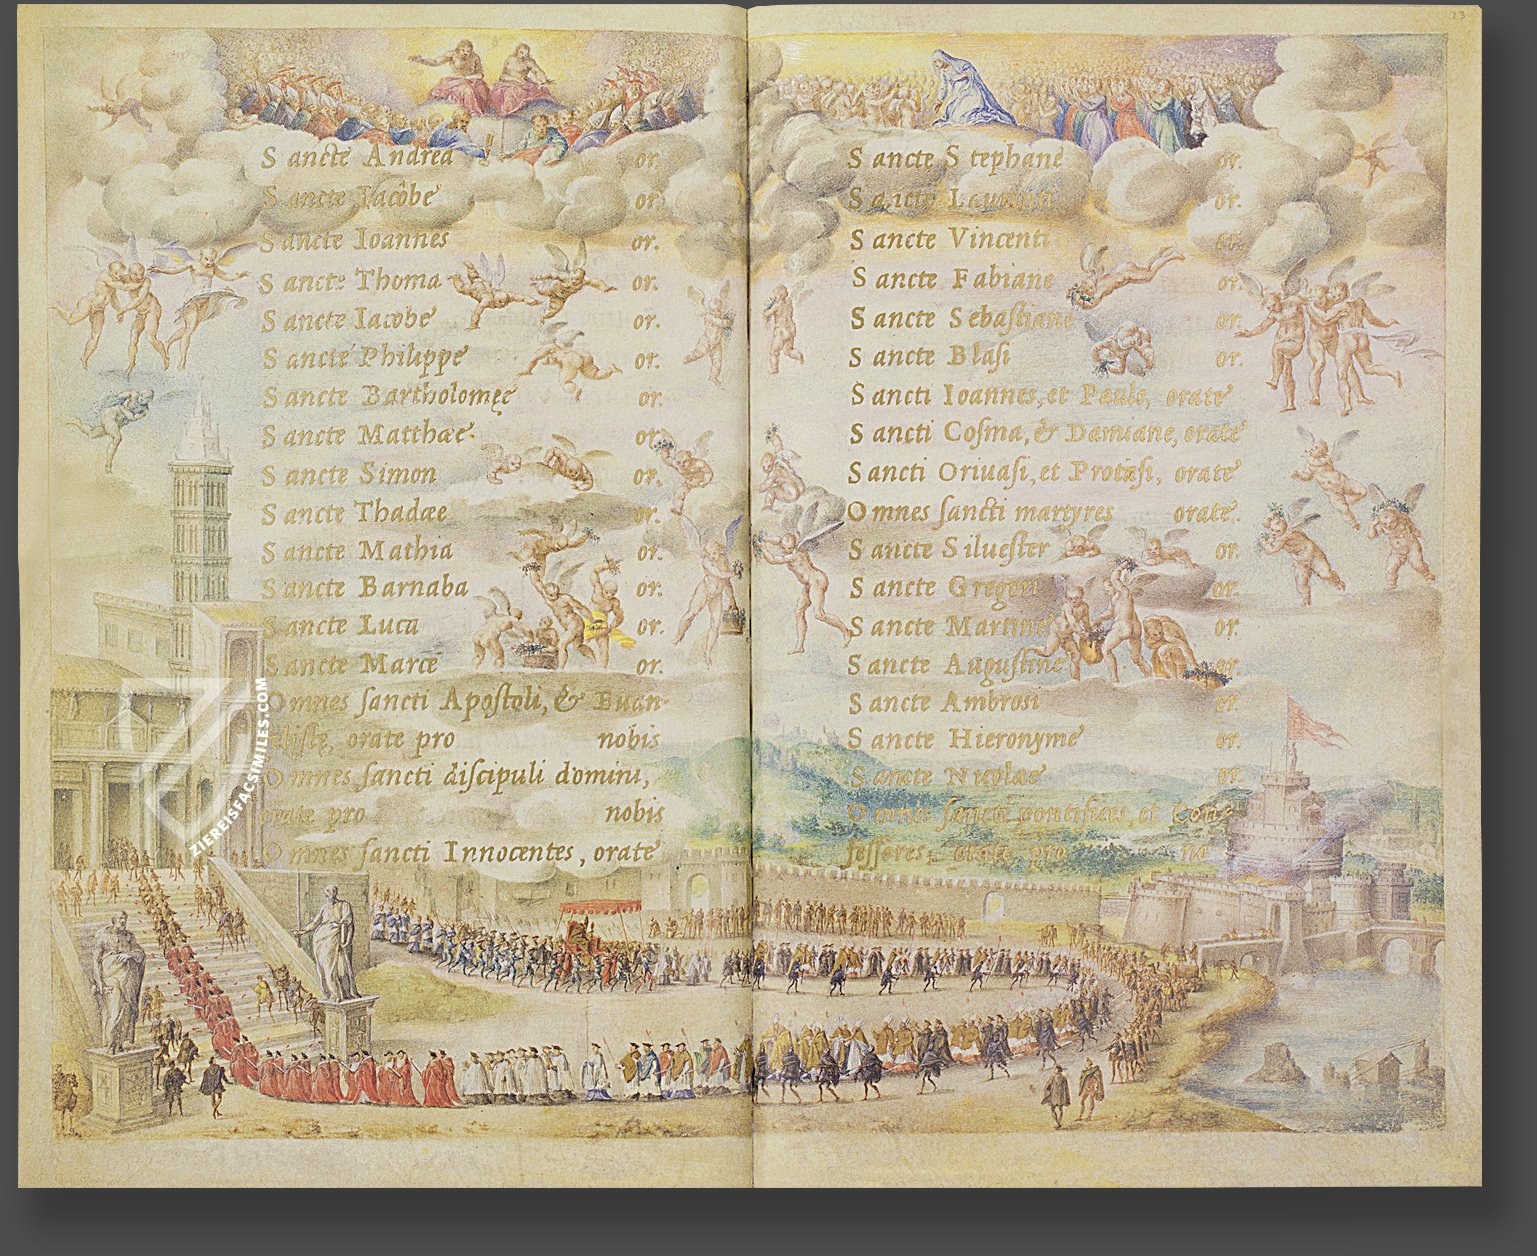 13
Sancte Andrea or.
Sancte Iacobe or.
Sancte Ioannes or.
Sancte Thoma or.
Sancte Iacobe or.
Sancte Philippe or.
Sancte Bartholomęe or.
Sancte Matthæe or.
Sancte Simon or.
Sancte Thadæe or.
Sancte Mathia or.
Sancte Barnaba or.
Sancte Luca or.
Sancte Marce or.
Omnes ſancti Apoſtoli, & Euan-
geliſtę, orate pro nobis
Omnes ſancti diſcipuli domini,
orate pro nobis
Omnes ſancti Innocentes, orate
Sancte Stephane or.
Sancte Laurenti or.
Sancte Vincenti or.
Sancte Fabiane or.
Sancte Sebaſtiane or.
Sancte Blaſi or.
Sancti Ioannes, et Paule, orate
Sancti Coſma, & Damiane, orate
Sancti Griuaſi, et Protaſi, orate
Omnes ſancti martyres orate.
Sancte Silueſter or.
Sancte Gregori or.
Sancte Martine or.
Sancte Auguſtine or.
Sancte Ambroſi or.
Sancte Hieronyme or.
Sancte Nicolae or.
Omnes ſancti pontifices, et Con-
feſſores, orate pro no
ZIEREISFACSIMILES.COM